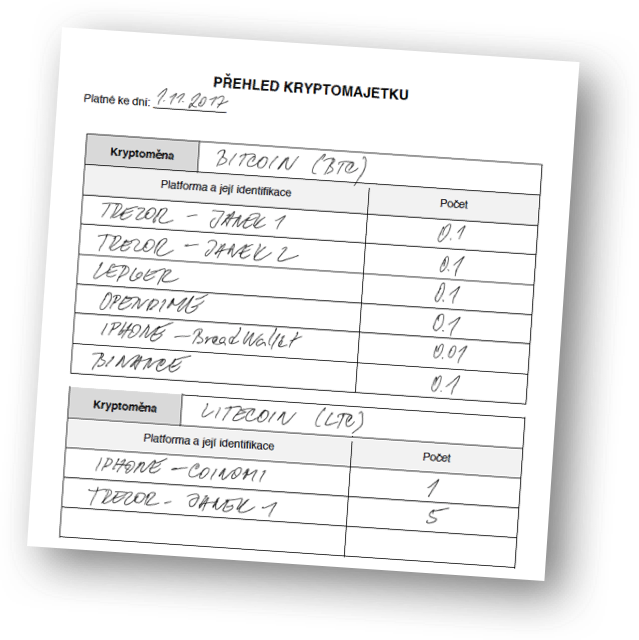 PŘEHLED KRYPTOMAJETKU
Platné ke dni: 1.11.2017
Kryptoměna BITCOIN (BTC)
Platforma a její identifikace Počet
TREZOR - JANEK 1 0.1
TREZOR - JANEK 2 0.1
LEDGER 0.1
OPENDIME 0.1
IPHONE - BreadWallet 0.01
BINANCE 0.1
Kryptoměna LITECOIN (LTC)
Platforma a její identifikace Počet
IPHONE - COINOMI 1
TREZOR - JANEK 1 5